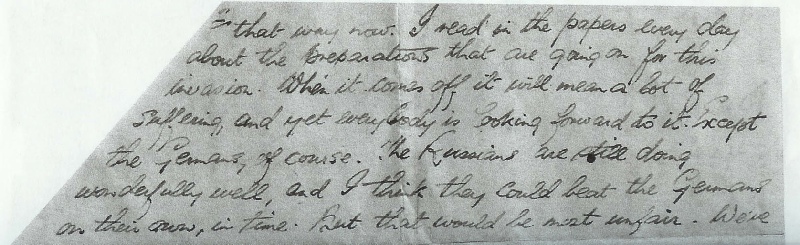 that way now. I read in the papers every day
about the preparations that are going on for this
invasion. When it comes off it will mean a lot of
suffering, and yet everybody is looking forward to it. Except
the Germans, of course. The Russians are still doing
wonderfully well, and I think they could beat the Germans
on their own, in time. But that would be most unfair. We've